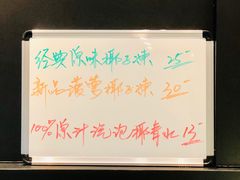 经典原味椰子冻 25
新品菠萝椰子冻 30
100%原汁汽泡椰青水 15